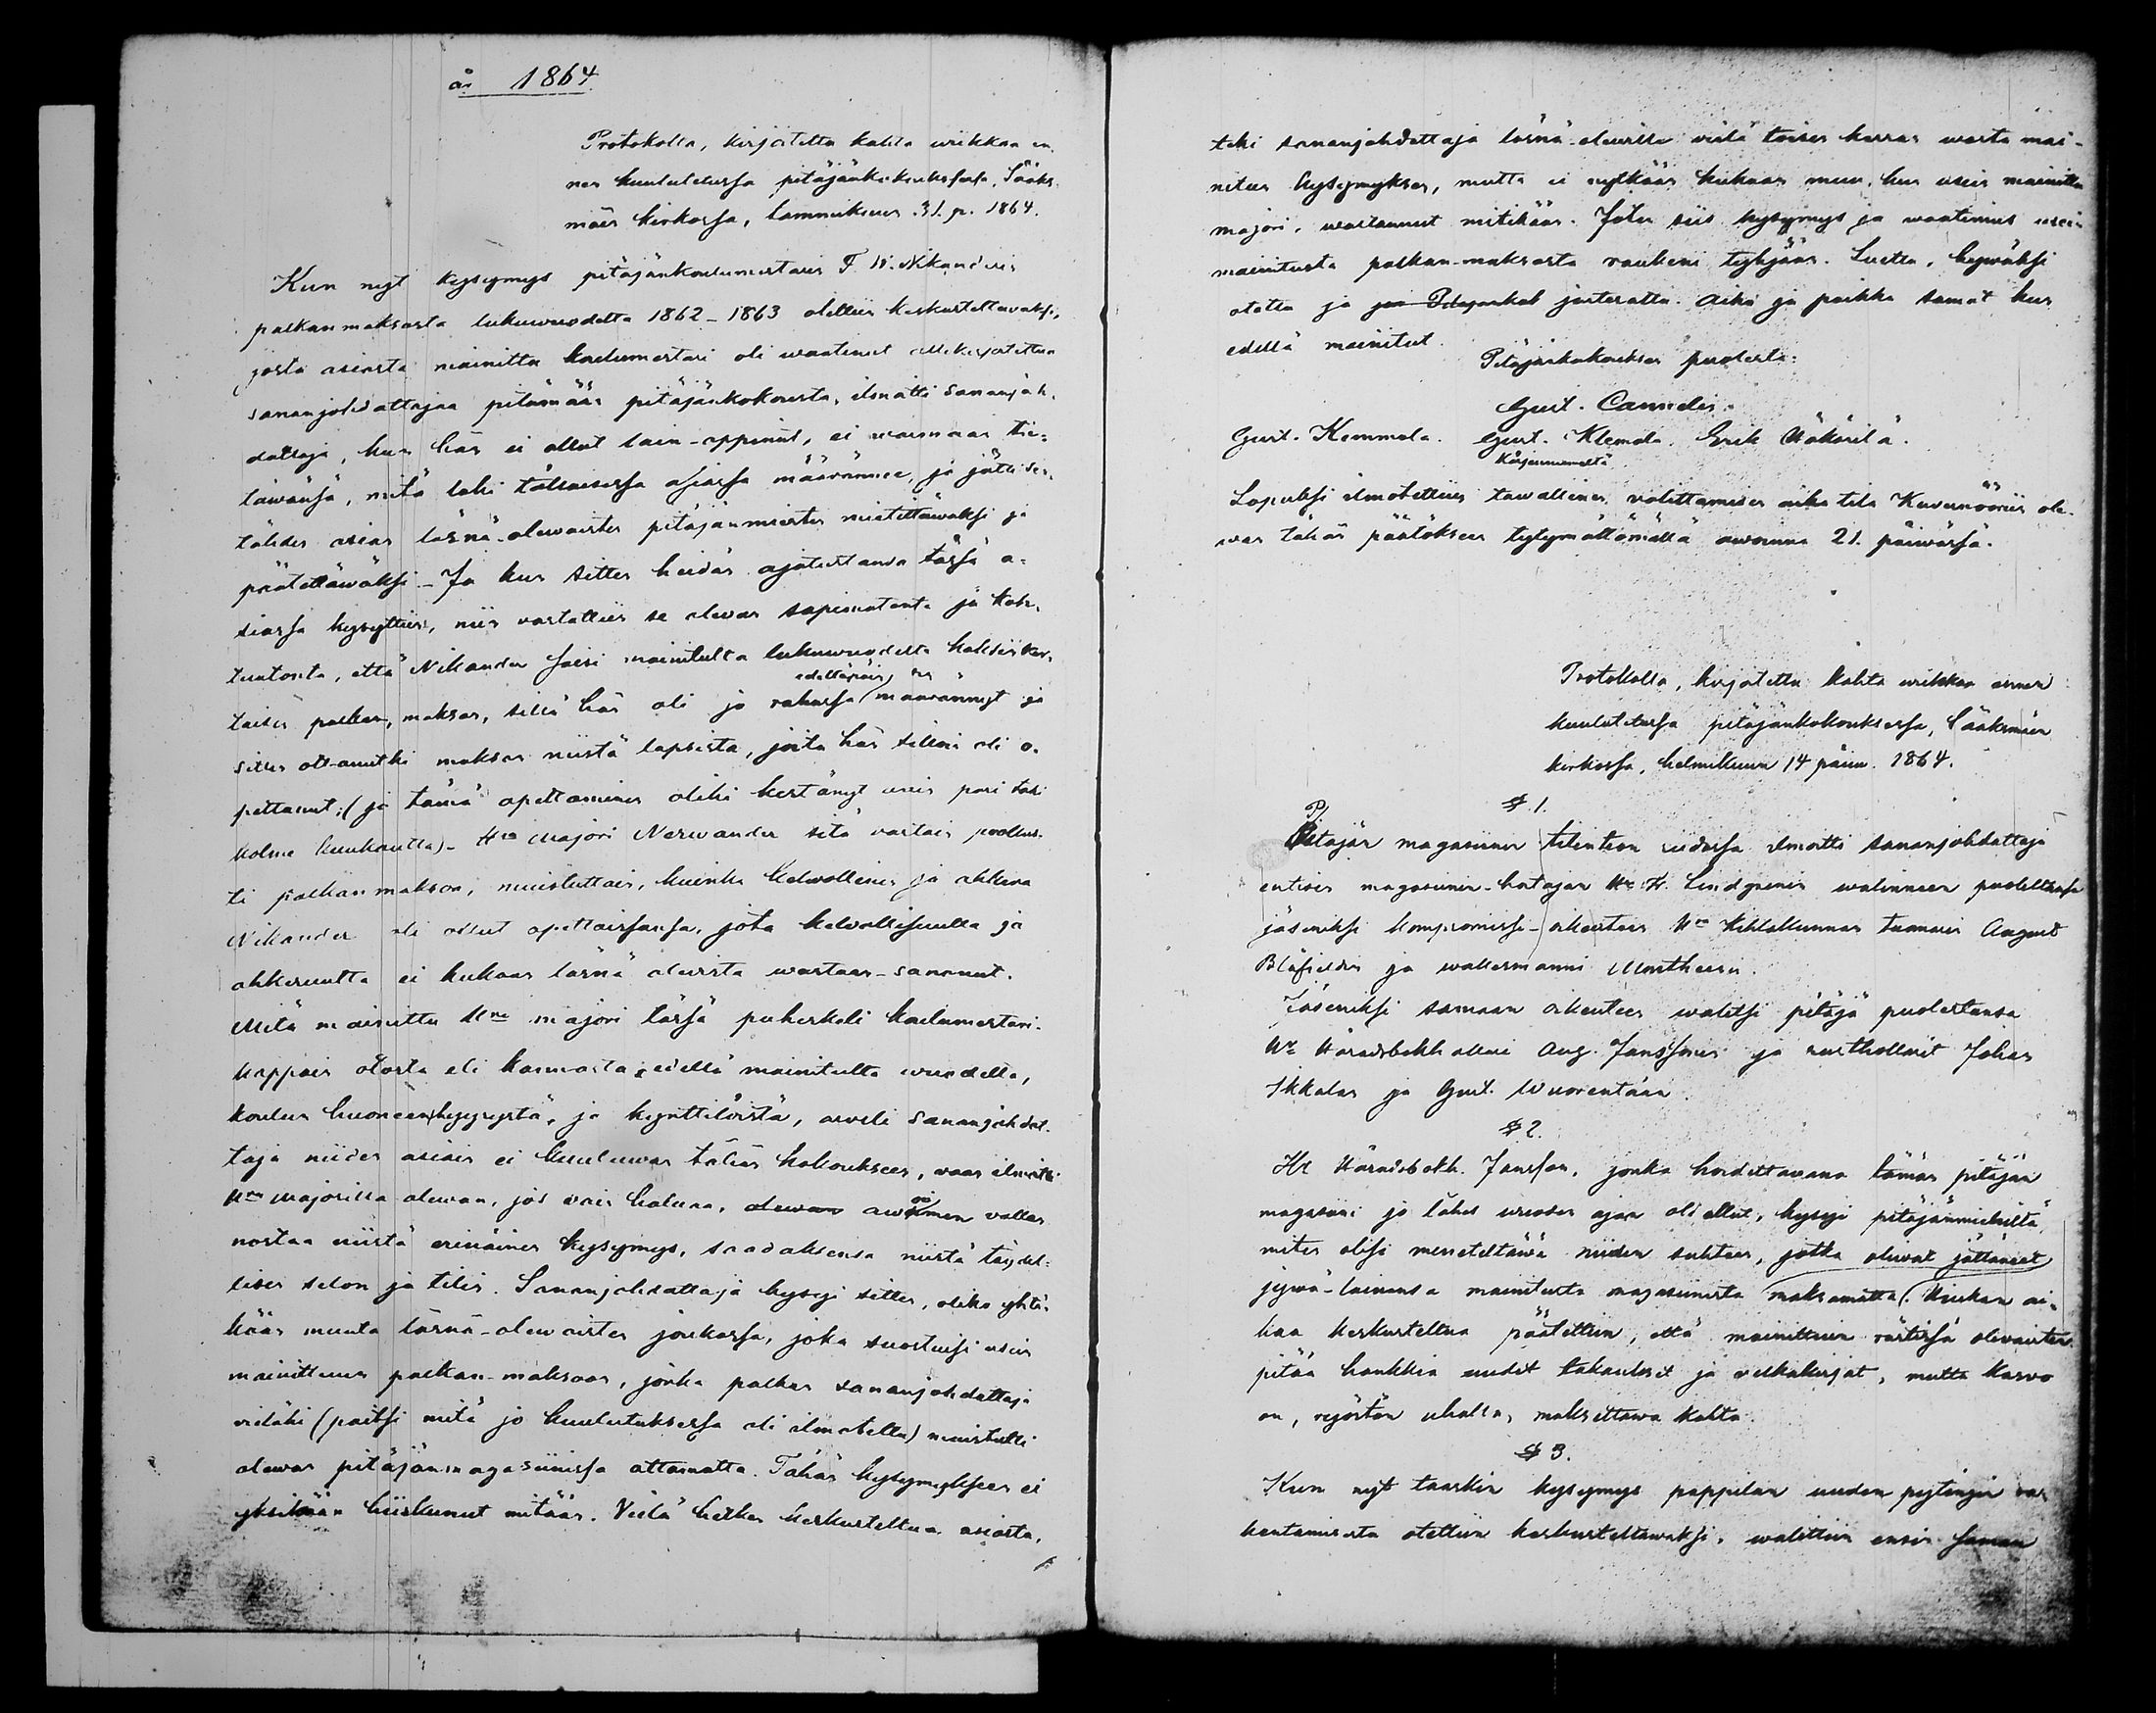 år 1864.
Protokolla, kirjoitettu kahta wiikkaa en-
nen kuulutetussa pitäjänkokouksessa, Sääks-
mäen kirkossa, tammikuun 31. p. 1864.
Kun nyt kysymys pitäjänkoulumestarin F. W. Nikanderin
palkanmaksosta lukuwuodelta 1862-1863 otettiin keskusteltavaksi,
josta asiasta mainittu koulumestari oli waatinut allekirjotettua
sananjohdattajaa pitämään pitäjänkokousta, ilmotti sananjoh-
dattaja, kun hän ei ollut lain-oppinut, ei warmaan tie-
täwänsä, mitä laki tällaisessa asiassa määrännee, ja jätti sen-
tähden asian läsnä-olewaisten pitäjänmiesten mietittäwäksi ja
päätettäwäksi. - Ja kun sitten heidän ajatustansa tässä a-
siassa kysyttiin, niin vastattiin se olewan sopimatonta ja koh-
tuutonta, että Nikander saisi mainitulta lukuwuodelta kaksinker-
taisen palkan, makson, sillä hän oli jo rahassa edeltäpäin määrännyt ja
sitten ottanutki makson niistä lapsista, joita hän silloin oli o-
pettanut; (ja tämä opettaminen oliki kestänyt wain pari taki
kolme kuukautta). - Hra Majori Nerwander sitä vastoin puollus-
ti palkanmaksoa, muistuttain, kuinka kelwollinen ja ahkera
Nikander oli ollut opettaissansa, jota kelvollisuutta ja
ahkeruutta ei kukaan läsnä olewista wastaan-sanonut.
Mitä mainittu Hra majori tässä puheskeli koulumestari-
kappain otosta eli kannosta edellä mainitulta wuodelta,
koulun huoneenhyyrystä, ja kynttilöistä, arveli sananjohdat-
taja niiden asiain ei kuuluwan tähän kokoukseen, waan ilmotti
Hra Majorilla olewan, jos wain haluaa, awoimen vallan
nostaa niistä erinäinen kysymys, saadaksensa niistä täydel-
lisen selon ja tilin. Sananjohdattaja kysyi sitten, oliko yhtä-
kään muuta läsnä-olewaisten joukossa, joka suostuisi usein
mainittuun palkan-maksoon, jonka palkan sananjohdattaja
vieläki (paitsi mitä jo kuulutuksessa oli ilmotettu) muistutti
olewan pitäjänmagasiinissa ottamatta. Tähän kysymykseen ei
yksikään hiiskunut mitään. Vielä hetken keskusteltua asiasta,
teki sananjohdattaja läsnä-olewille vielä toisen kerran wasta mai-
nitun kysymyksen, mutta ei nytkään kukaan muu, kun usein mainittu
majori, wastannut mitikään. Joten siis kysymys ja waatimus usein
mainitusta palkan-maksosta raukeni tyhjään. Luettu, hywäksi
otettu ja juteratto. Aika ja paikka samat kun
edellä mainitut.
Pitäjänkokouksen puolesta:
Gust. Cannelin.
Gust. Kemmola. Gust. Klemola. Erik Häkärilä.
Kärjenniemeltä
Lopuksi ilmotettiin tawallinen valittamisen aika tila Kuvernöörin ole-
wan tähän päätökseen tytymättömällä awoinna 21. päiwässä.
Protokolla, kirjotettu kahta wiikkoa ennen
kuulutetussa pitäjänkokouksessa, Sääksmäen
kirkossa, helmikuun 14 päiw. 1864.
§ 1.
Pitäjän magasiinin tilinteon riidassa ilmotti sananjohdattaja
entisen magasiinin-hoitajan Hr. H. Lindgrenin walinneen puolestansa
jäseniksi kompromissi-oikeuteen Hra Kihlakunnan tuomarin August
Blåfieldin ja waltermanni Montheenin.
Jäseniksi samaan oikeuteen walitsi pitäjä puolestansa
Hr. Häradsbokh olleni Aug. Janssonin ja rusthollarit Johan
Ikkalan ja Gust. Wuorentaan.
§ 2.
Hr Häradsbokh. Janson, jonka hoidettavana tämän pitäjän
magasiini jo lähes wuoden ajan oli ollut, kysyi pitäjänmiehiltä,
miten olisi meneteltäwä niiden suhteen, jotka oliwat jättäneet
jywä-lainansa mainitusta magasiinista maksamatta. Kunkan ai-
kaa keskusteltua päätettiin, että mainittuin rästissä olevaisten
pitää hankkia uudet takaukset ja velkakirjat, mutta kasvo
on, ryöstön uhalla, maksettawa kohta.
§ 3.
Kun nyt taaskin kysymys pappilan uuden pytingin ra-
kentamisesta otettiin keskusteltawaksi, walittiin ensin saman